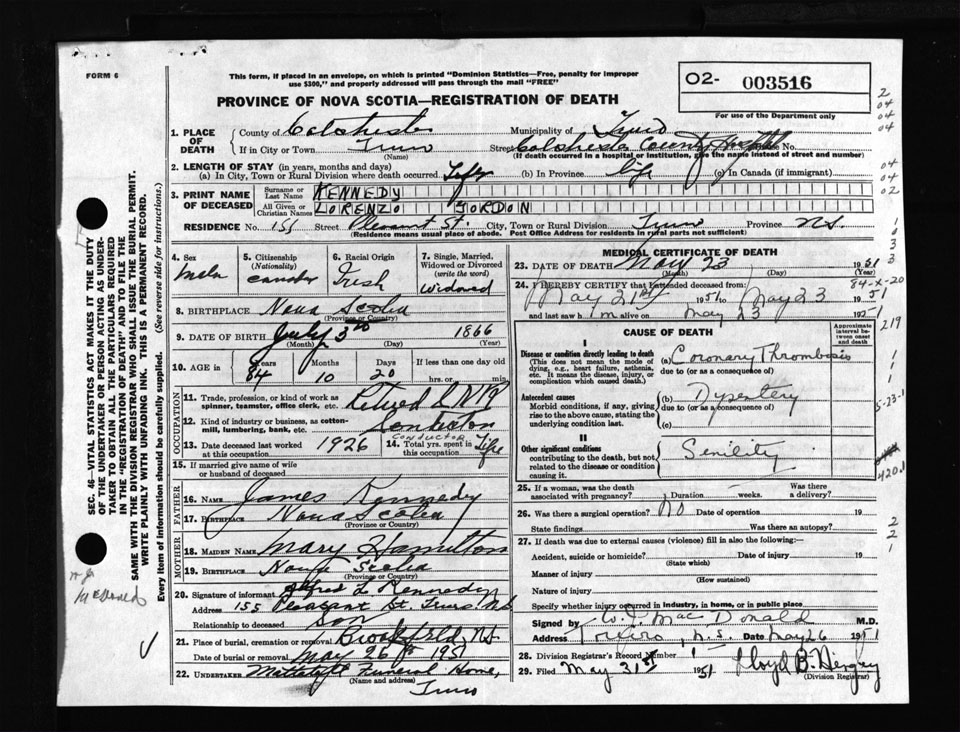 FORM 6
This form, if placed in an envelope, on which is printed "Dominion Statistics—Free, penalty for improper
use $300," and properly addressed will pass through the mail "FREE"
O2- 003516
For use of the Department only
PROVINCE OF NOVA SCOTIA—REGISTRATION OF DEATH
1. PLACE OF DEATH
County of Colchester Municipality of Truro
If in City or Town Truro Street Colchester County Hospital House No.
(Name) (If death occurred in a hospital or institution, give the name instead of street and number)
2. LENGTH OF STAY (in years, months and days)
(a) In City, Town or Rural Division where death occurred (b) In Province life (c) In Canada (if immigrant)
3. PRINT NAME OF DECEASED
Surname or Last Name KENNEDY
All Given or Christian Names LORENZO JORDON
RESIDENCE No. 155 Street Pleasant St. City, Town or Rural Division Truro Province N.S.
(Residence means usual place of abode. Post Office Address for residents in rural parts not sufficient)
4. Sex
male
5. Citizenship (Nationality)
6. Racial Origin
Irish
7. Single, Married, Widowed or Divorced (write the word)
Widowed
8. BIRTHPLACE Nova Scotia
(Province or Country)
9. DATE OF BIRTH July 3rd 1866
(Month) (Day) (Year)
10. AGE in Years Months Days If less than one day old
84 10 20 hrs. or min.
OCCUPATION
11. Trade, profession, or kind of work as spinner, teamster, office clerk, etc. Retired
12. Kind of industry or business, as cotton-mill, lumbering, bank, etc.
conductor
13. Date deceased last worked at this occupation 1926
14. Total yrs. spent in this occupation Life
15. If married give name of wife or husband of deceased
FATHER
16. NAME James Kennedy
17. BIRTHPLACE Nova Scotia
(Province or Country)
MOTHER
18. MAIDEN NAME Mary Hamilton
19. BIRTHPLACE Nova Scotia
(Province or Country)
20. Signature of informant Alfred L Kennedy
Address 155 Pleasant St. Truro N.S.
Relationship to deceased Son
21. Place of burial, cremation or removal Brookfield, N.S.
Date of burial or removal May 26th 1951
22. UNDERTAKER Funeral Home,
(Name and address) Truro
MEDICAL CERTIFICATE OF DEATH
23. DATE OF DEATH May 23 1951
(Month) (Day) (Year)
84-X-20
24. I HEREBY CERTIFY that I attended deceased from:
May 21st 1951 to May 23 1951
and last saw him alive on May 23 1951
CAUSE OF DEATH
Approximate interval between onset and death
I
Disease or condition directly leading to death
(This does not mean the mode of dying, e.g., heart failure, asthenia, etc. It means the disease, injury, or complication which caused death.)
(a) Coronary Thrombosis
due to (or as a consequence of)
Antecedent causes
Morbid conditions, if any, giving rise to the above cause, stating the underlying condition last.
(b) Dysentery
due to (or as a consequence of)
(c)
II
Other significant conditions
contributing to the death, but not related to the disease or condition causing it.
Senility
25. If a woman, was the death associated with pregnancy? Duration weeks. Was there a delivery?
26. Was there a surgical operation? No Date of operation 19
State findings Was there an autopsy?
27. If death was due to external causes (violence) fill in also the following:
Accident, suicide or homicide? Date of injury 19
(State which)
Manner of injury
(How sustained)
Nature of injury
Specify whether injury occurred in industry, in home, or in public place
Signed by W. J. MacDonald M.D.
Address Truro, N.S. Date May 26 1951
28. Division Registrar's Record Number
29. Filed May 31st 1951 Lloyd B.
(Division Registrar)
SEC. 46—VITAL STATISTICS ACT MAKES IT THE DUTY
OF THE UNDERTAKER OR PERSON ACTING AS UNDER-
TAKER TO OBTAIN ALL THE PARTICULARS REQUIRED
IN THE "REGISTRATION OF DEATH" AND TO FILE THE
SAME WITH THE DIVISION REGISTRAR WHO SHALL ISSUE THE BURIAL PERMIT.
WRITE PLAINLY WITH UNFADING INK. THIS IS A PERMANENT RECORD.
Every item of information should be carefully supplied. (See reverse side for instructions.)
McDonald
2
04
04
04
04
04
02
1
0
3
3
219
1
1
1
5-23-1
420.1
2
2
1